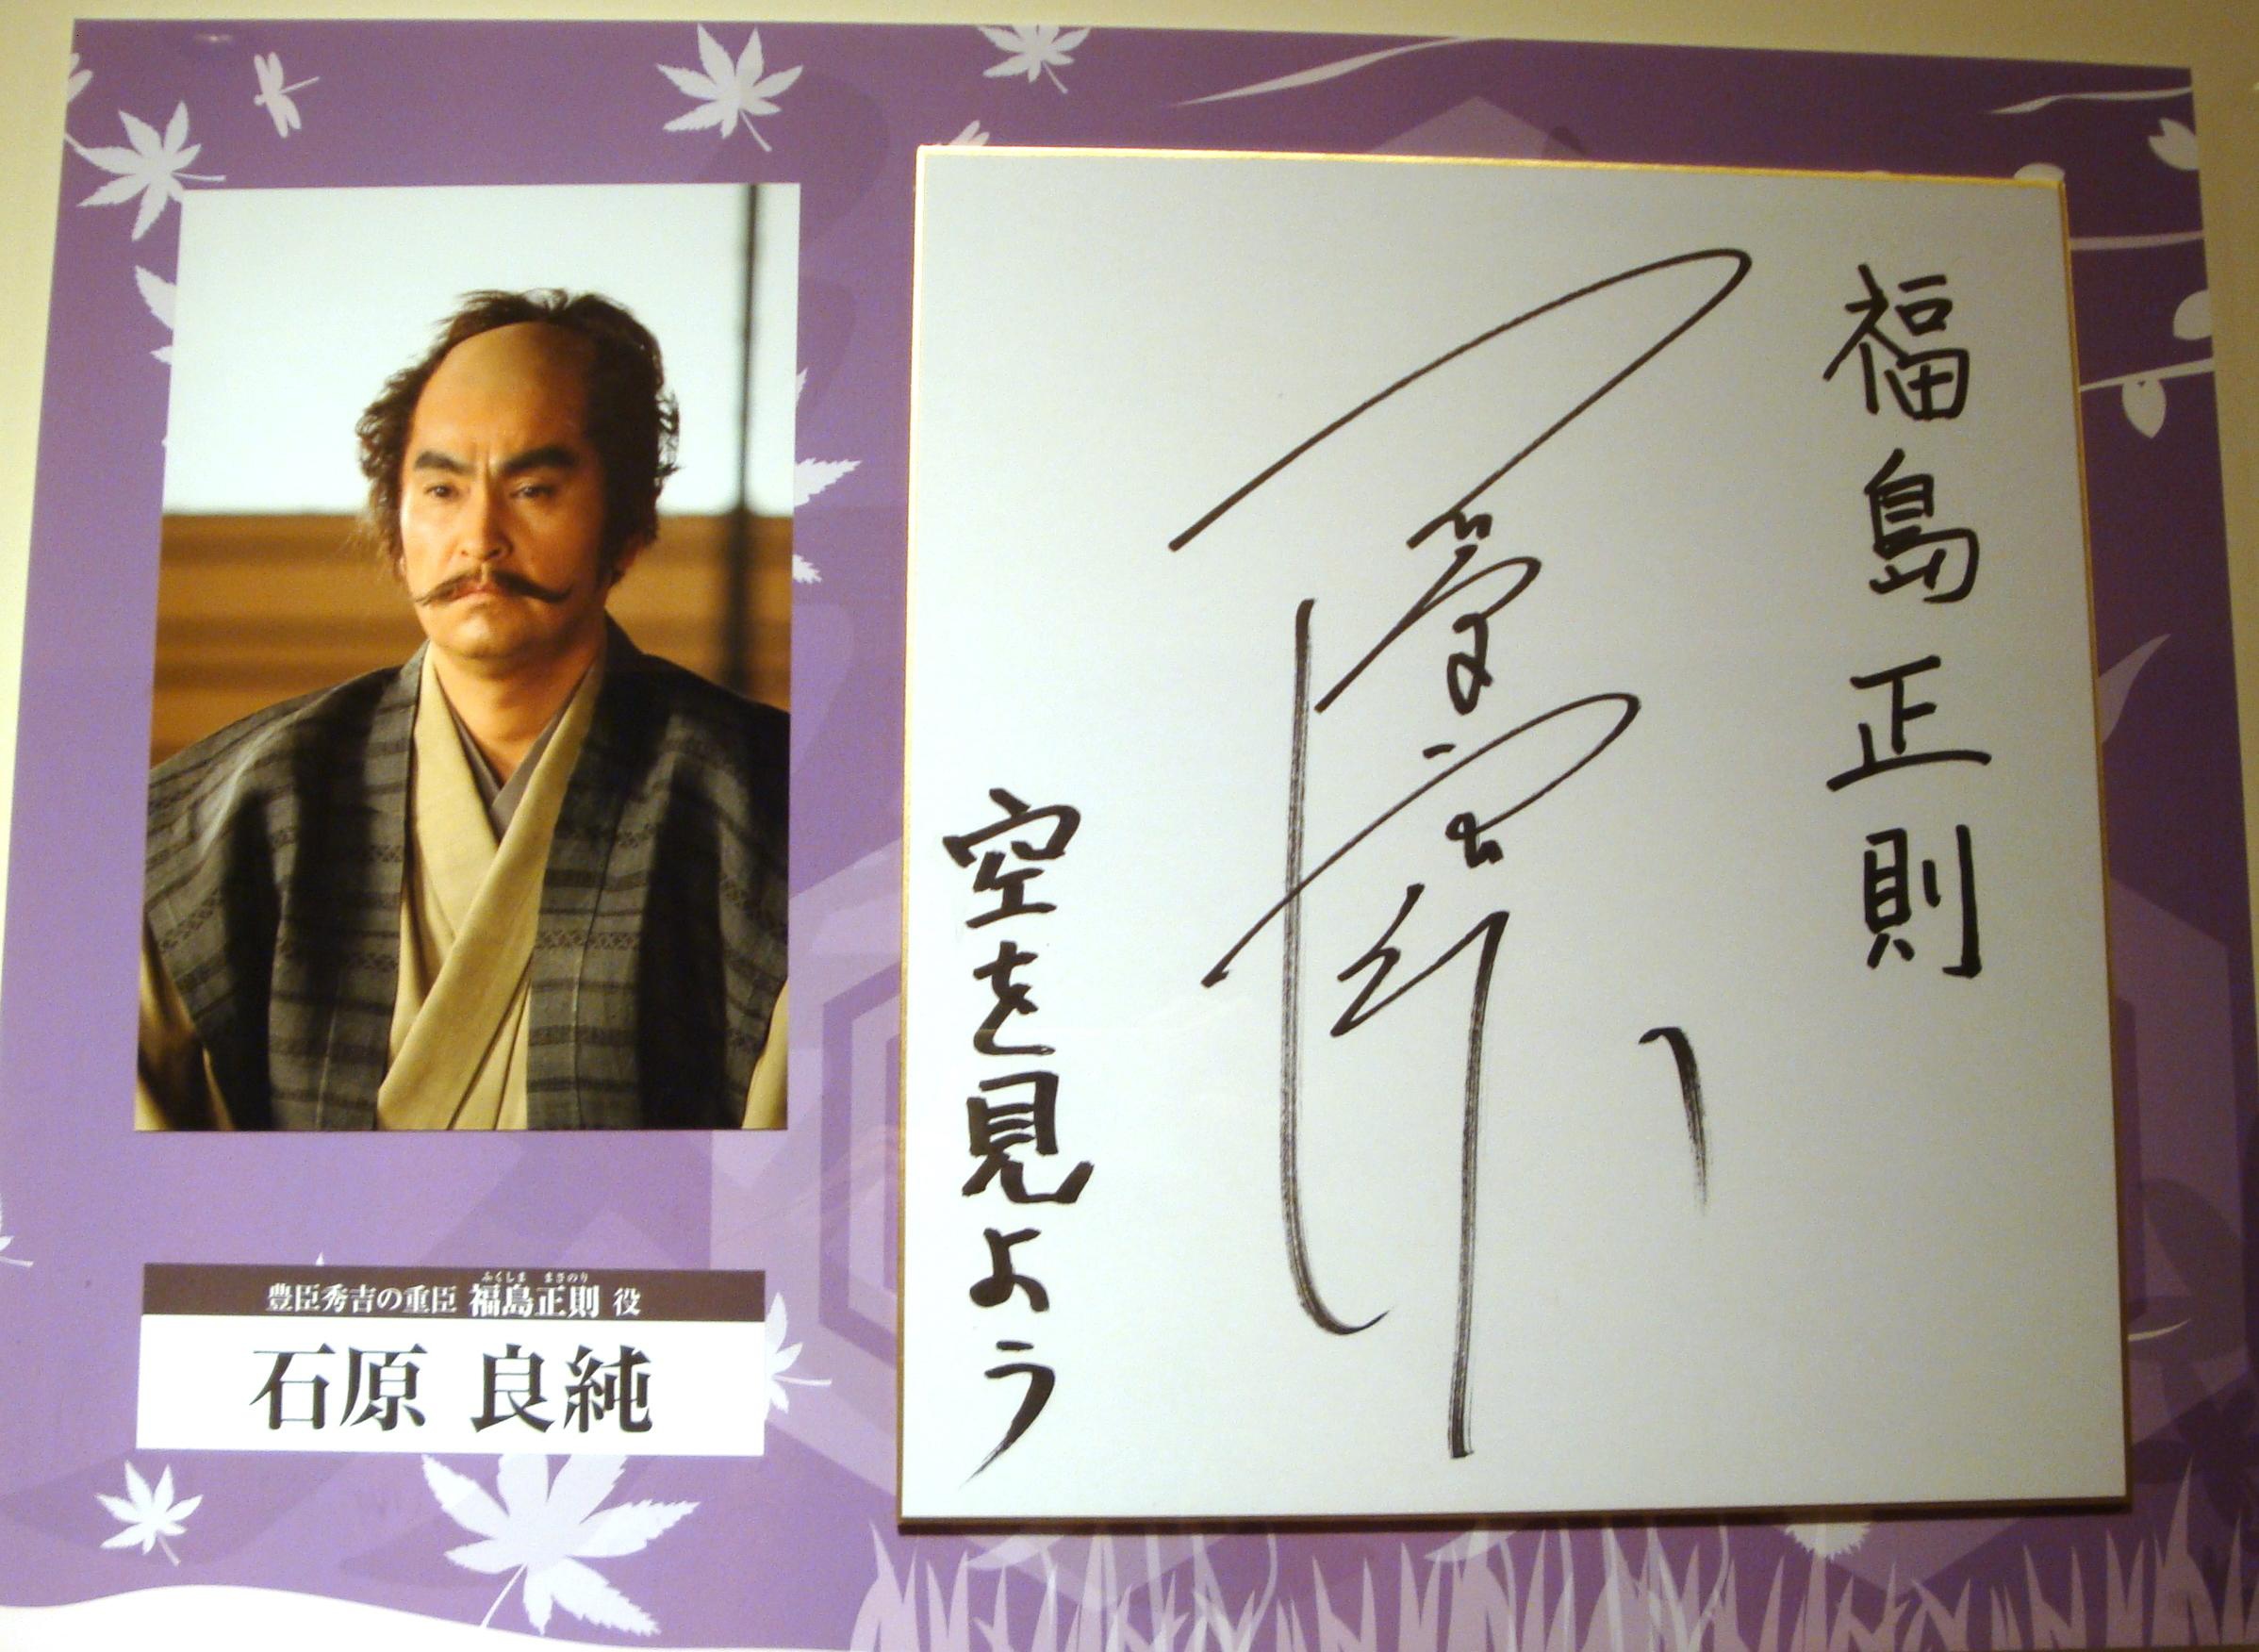 福島正則
空を見よう
ふくしま まさのり
豊臣秀吉の重臣 福島正則 役
石原 良純